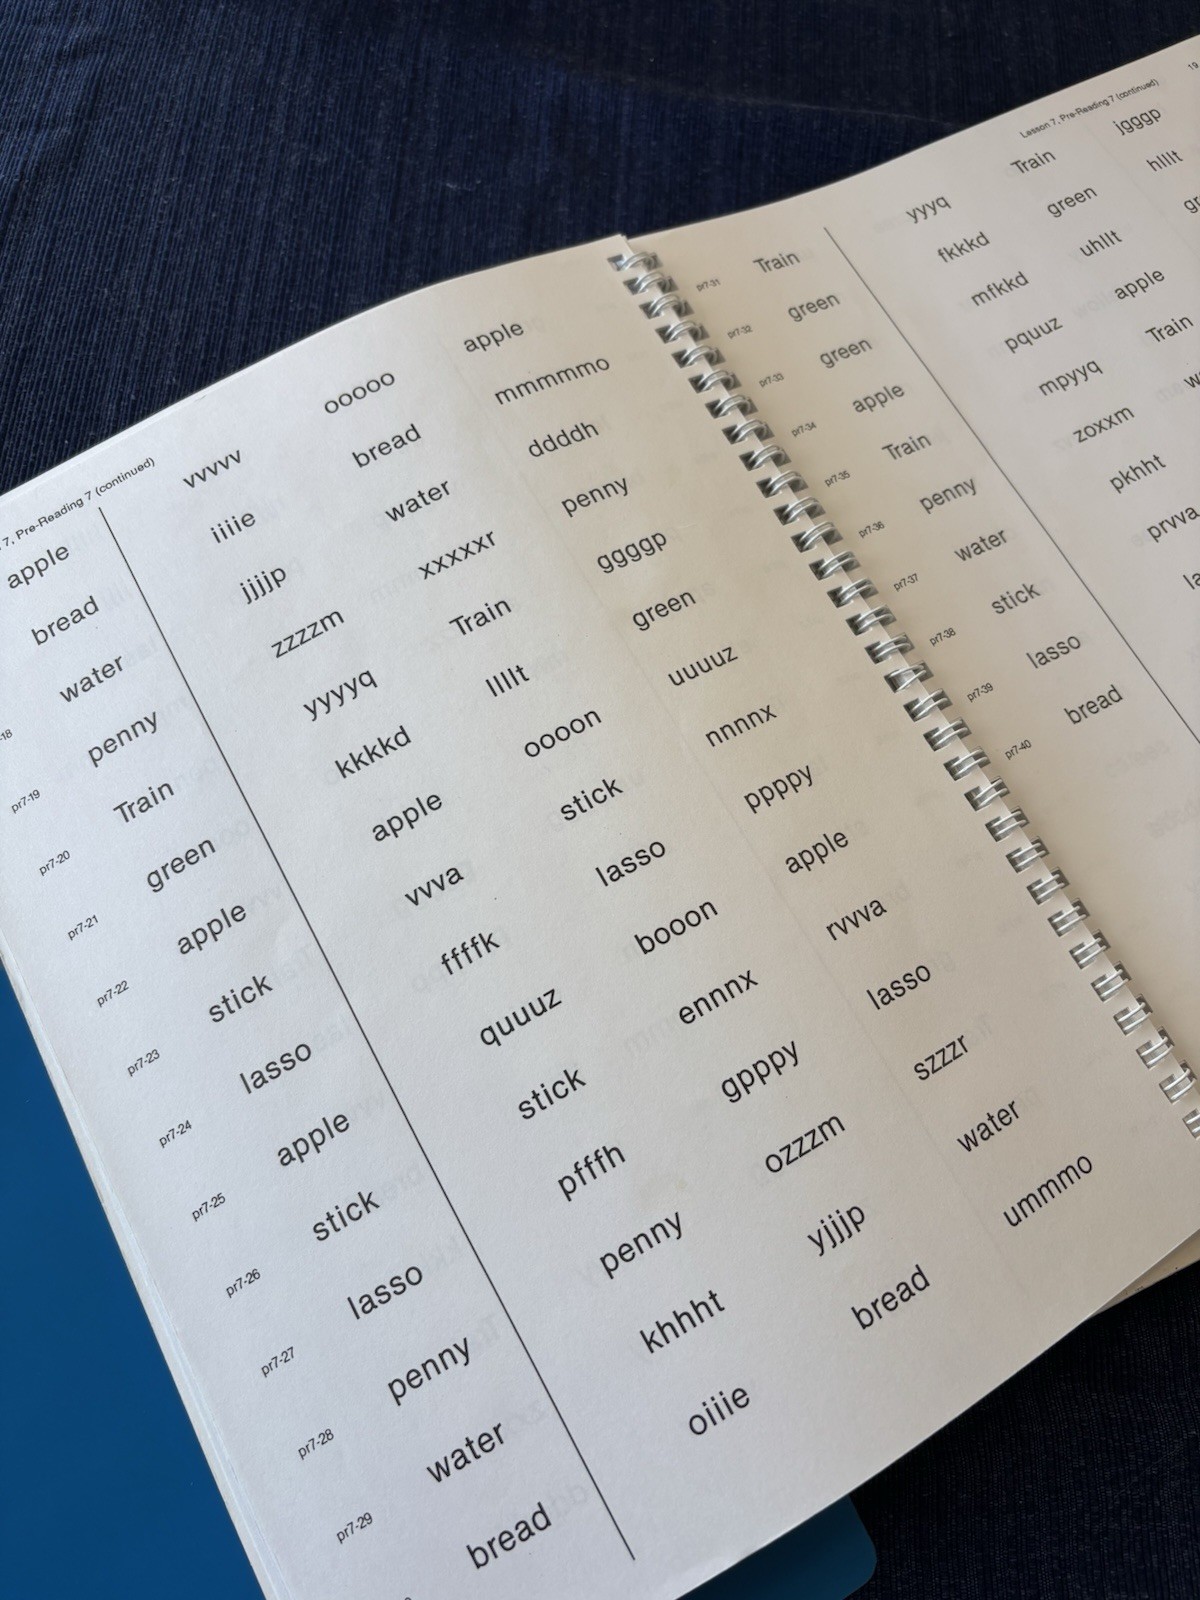 7, Pre-Reading 7 (continued)
apple vvvvv ooooo apple
bread iiiie bread mmmmmo
18 water jjjjp water ddddh
pr7-19 penny zzzzm xxxxxr penny
pr7-20 Train yyyyq Train ggggp
pr7-21 green kkkkd llllt green
pr7-22 apple apple oooon uuuuz
pr7-23 stick vvva stick nnnnx
pr7-24 lasso ffffk lasso ppppy
pr7-25 apple quuuz booon apple
pr7-26 stick stick ennnx rvvva
pr7-27 lasso pfffh gpppy lasso
pr7-28 penny penny ozzzm szzzr
pr7-29 water khhht yjjjp water
bread oiiie bread ummmo
Lesson 7, Pre-Reading 7 (continued) 19
pr7-31 Train yyyq Train jgggp
pr7-32 green fkkkd green hlllt
pr7-33 green mfkkd uhllt
pr7-34 apple pquuz apple
pr7-35 Train mpyyq Train
pr7-36 penny zoxxm
pr7-37 water pkhht
pr7-38 stick prvva
pr7-39 lasso
pr7-40 bread